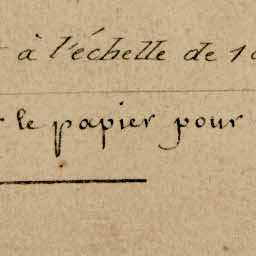 à l'échelle de 10
le papier pour